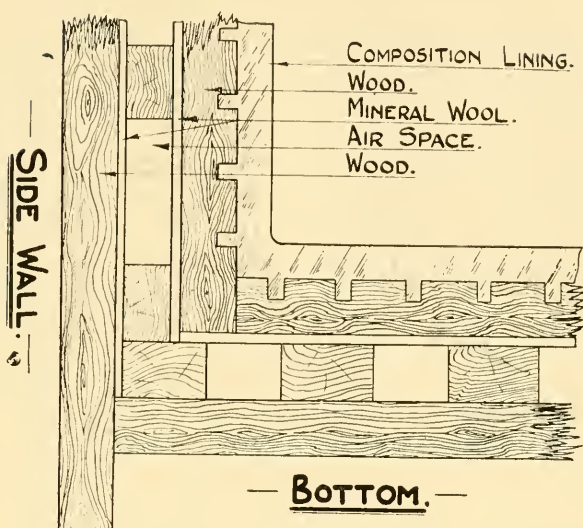 COMPOSITION LINING.
WOOD.
MINERAL WOOL.
AIR SPACE.
WOOD.
— SIDE WALL. —
— BOTTOM. —